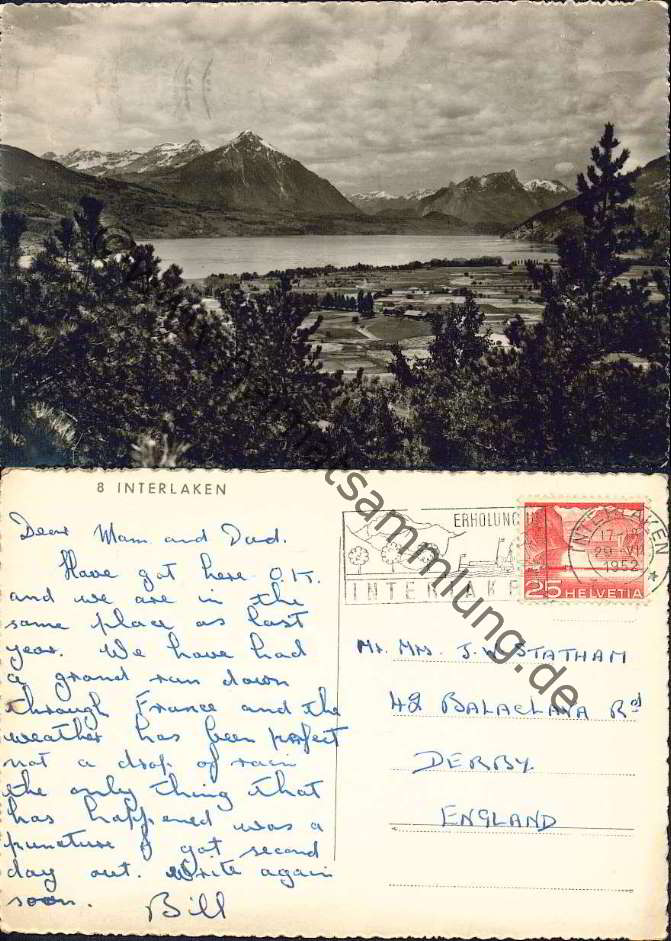 8 INTERLAKEN
Dear Mam and Dad.
Have got here O.K.
and we are in the
same place as last
year. We have had
a grand run down
through France and the
weather has been perfect
not a drop of rain
the only thing that
has happened was a
puncture I got second
day out. Write again
soon.
Bill
ERHOLUNG
INTERLAKE
INTERLAKEN
17
29 VII
1952
25 HELVETIA
Mr. Mrs. J. W STATHAM
42 BALACLAVA Rd
DERBY.
ENGLAND
atsammlung.de